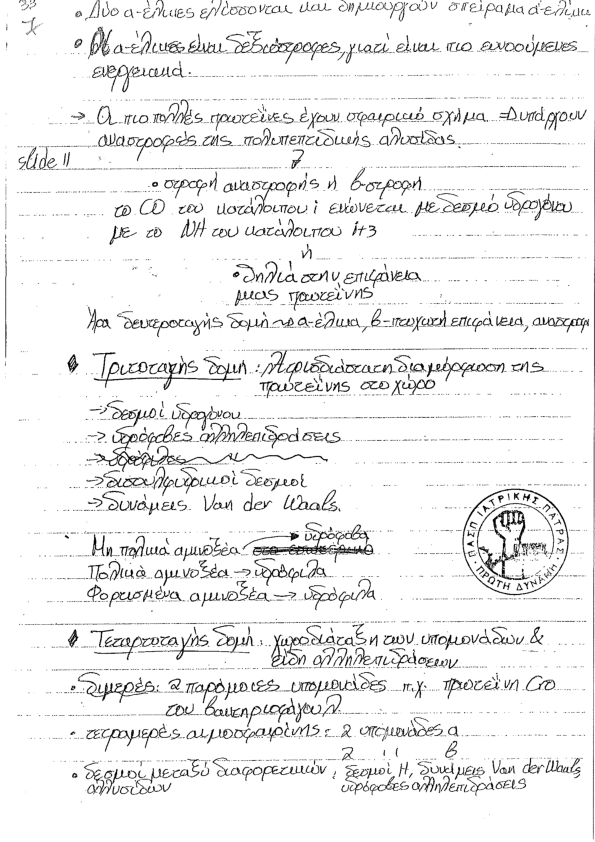 33
• Δυο α-έλικες ελίσσονται και δημιουργούν σπείραμα α-έλικα
• Οι α-έλικες είναι δεξιόστροφες, γιατί είναι πιο ευνοούμενες
ενεργειακά.
→ Οι πιο πολλές πρωτεΐνες έχουν σφαιρικό σχήμα ⇒ υπάρχουν
αναστροφές της πολυπεπτιδικής αλυσίδας.
slide 11
• στροφή αναστροφής ή β-στροφή
το CO του κατάλοιπου i ενώνεται με δεσμό υδρογόνου
με το NH του κατάλοιπου i+3
ή
• θηλιά στην επιφάνεια
μιας πρωτεΐνης
Άρα δευτεροταγής δομή → α-έλικα, β-πτυχωτή επιφάνεια, αναστροφή
Τριτοταγής δομή: τρισδιάστατη διαμόρφωση της
πρωτεΐνης στο χώρο
→ δεσμοί υδρογόνου
→ υδρόφοβες αλληλεπιδράσεις
→ υδρόφιλες
→ δισουλφιδικοί δεσμοί
→ δυνάμεις Van der Waals.
Μη πολικά αμινοξέα → υδρόφοβα
Πολικά αμινοξέα → υδρόφιλα
Φορτισμένα αμινοξέα → υδρόφιλα
ΠΑΣΠ ΙΑΤΡΙΚΗΣ ΠΑΤΡΑΣ • ΠΡΩΤΗ ΔΥΝΑΜΗ •
Τεταρτοταγής δομή: χωροδιάταξη των υπομονάδων &
είδη αλληλεπιδράσεων
• διμερές: 2 παρόμοιες υπομονάδες π.χ. πρωτεΐνη Cro
του βακτηριοφάγου λ
• τετραμερές αιμοσφαιρίνης: 2 υπομονάδες α
2 '' β
• δεσμοί μεταξύ διαφορετικών: δεσμοί H, δυνάμεις Van der Waals,
αλυσίδων υδρόφοβες αλληλεπιδράσεις